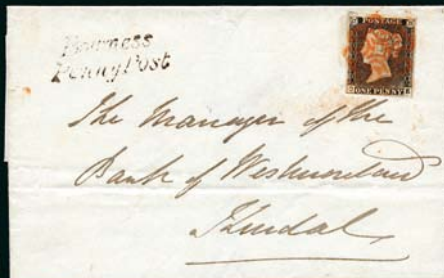 Bowness
Penny Post
POSTAGE
ONE PENNY
The Manager of the
Bank of Westmoreland
Kendal